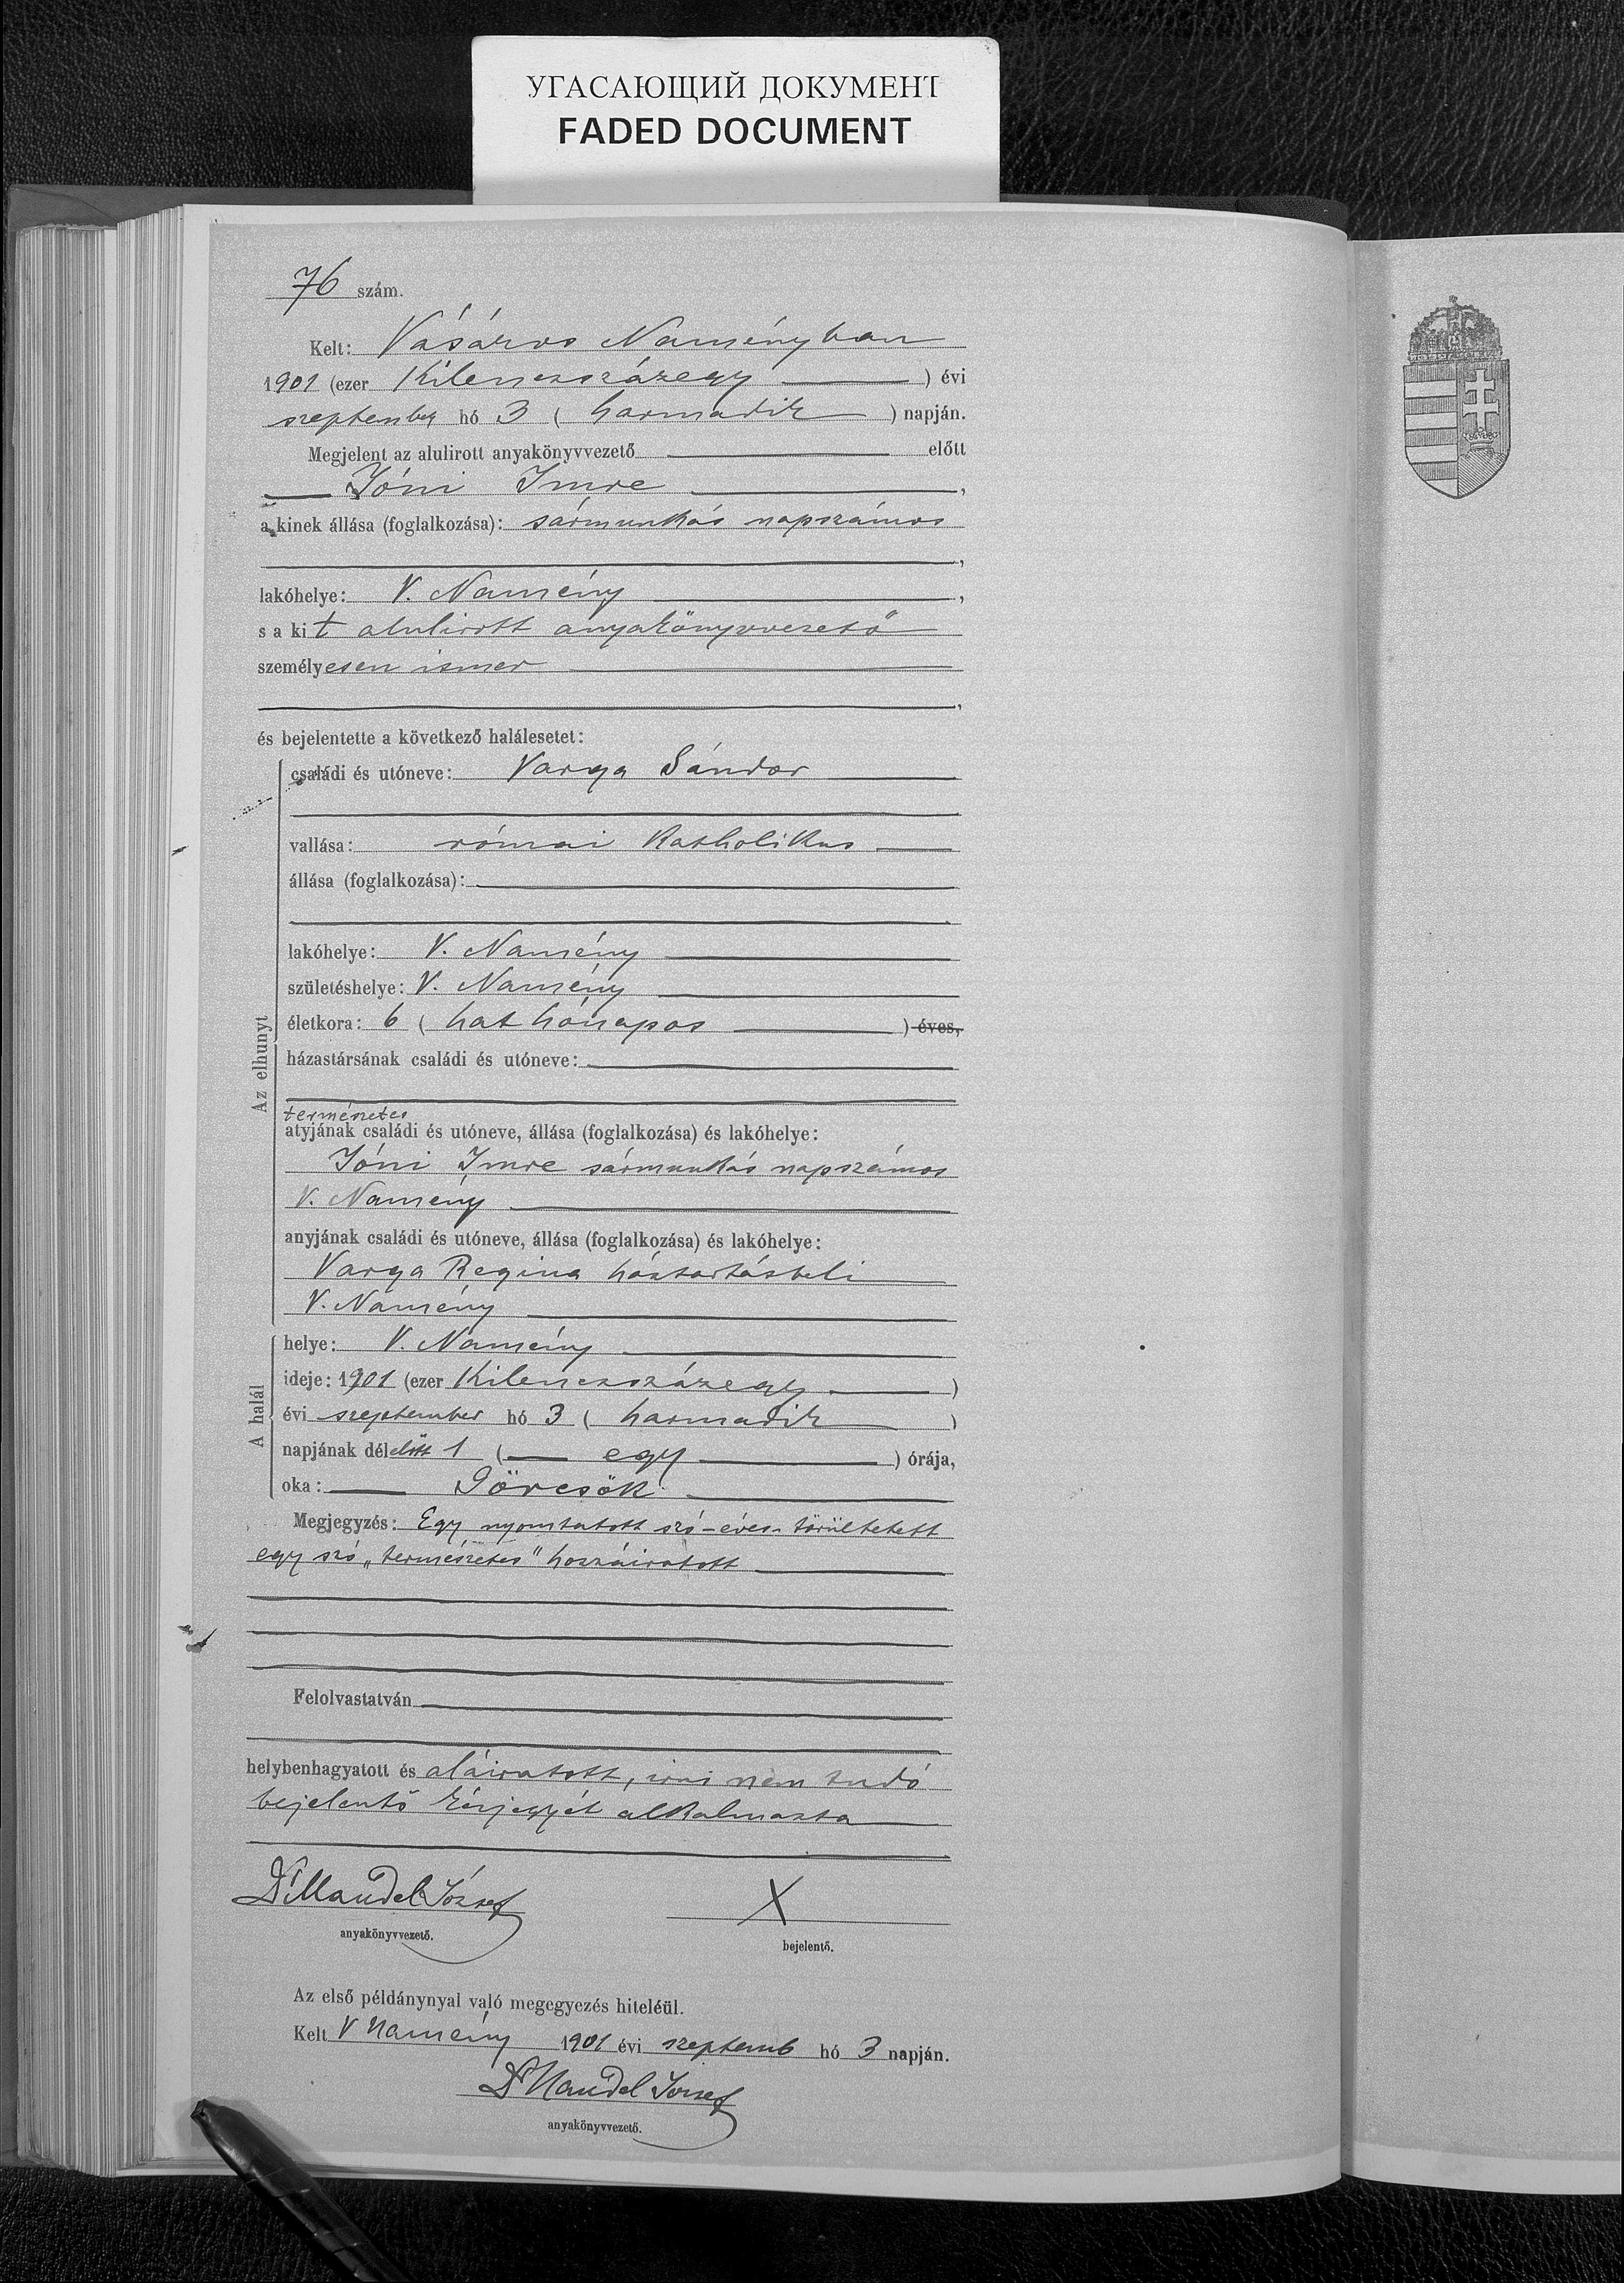 УГАСАЮЩИЙ ДОКУМЕНТ
FADED DOCUMENT
76 szám.
Kelt: Vásáros Naményban
1901 (ezer Kilenczszázegy) évi
szeptember hó 3 (harmadik) napján.
Megjelent az alulirott anyakönyvvezető előtt
Jóni Imre,
a kinek állása (foglalkozása): sármunkás napszámos
,
lakóhelye: V. Namény,
s a kit alulirott anyakönyvvezető
személyesen ismer
,
és bejelentette a következő halálesetet:
Az elhunyt
családi és utóneve: Varga Sándor
vallása: római katholikus
állása (foglalkozása):
lakóhelye: V. Namény
születéshelye: V. Namény
életkora: 6 (hat hónapos) éves,
házastársának családi és utóneve:
természetes
atyjának családi és utóneve, állása (foglalkozása) és lakóhelye:
Jóni Imre sármunkás napszámos
V. Namény
anyjának családi és utóneve, állása (foglalkozása) és lakóhelye:
Varga Regina háztartásbeli
V. Namény
A halál
helye: V. Namény
ideje: 1901 (ezer Kilenczszázegy)
évi szeptember hó 3 (harmadik)
napjának délelőtt 1 (egy) órája,
oka: Görcsök
Megjegyzés: Egy nyomtatott szó - éves - töröltetett
egy szó „természetes" hozzáiratott
Felolvastatván
helybenhagyatott és aláiratott, irni nem tudó
bejelentő kézjegyét alkalmazta
Dr Mandel József X
anyakönyvvezető. bejelentő.
Az első példánynyal való megegyezés hiteléül.
Kelt V Namény 1901 évi szeptemb hó 3 napján.
Dr Mandel József
anyakönyvvezető.